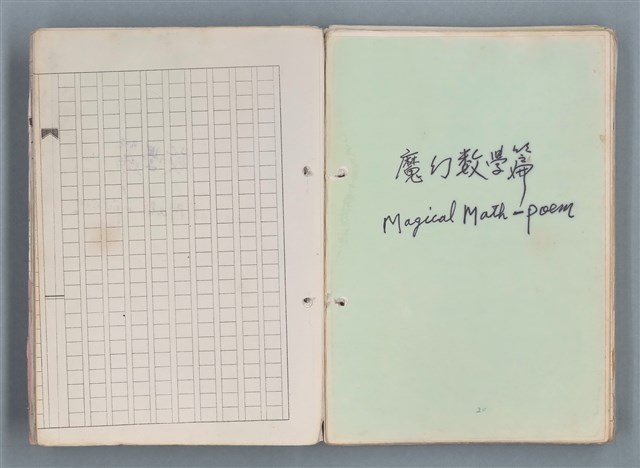 魔幻数學篇
Magical Math-poem